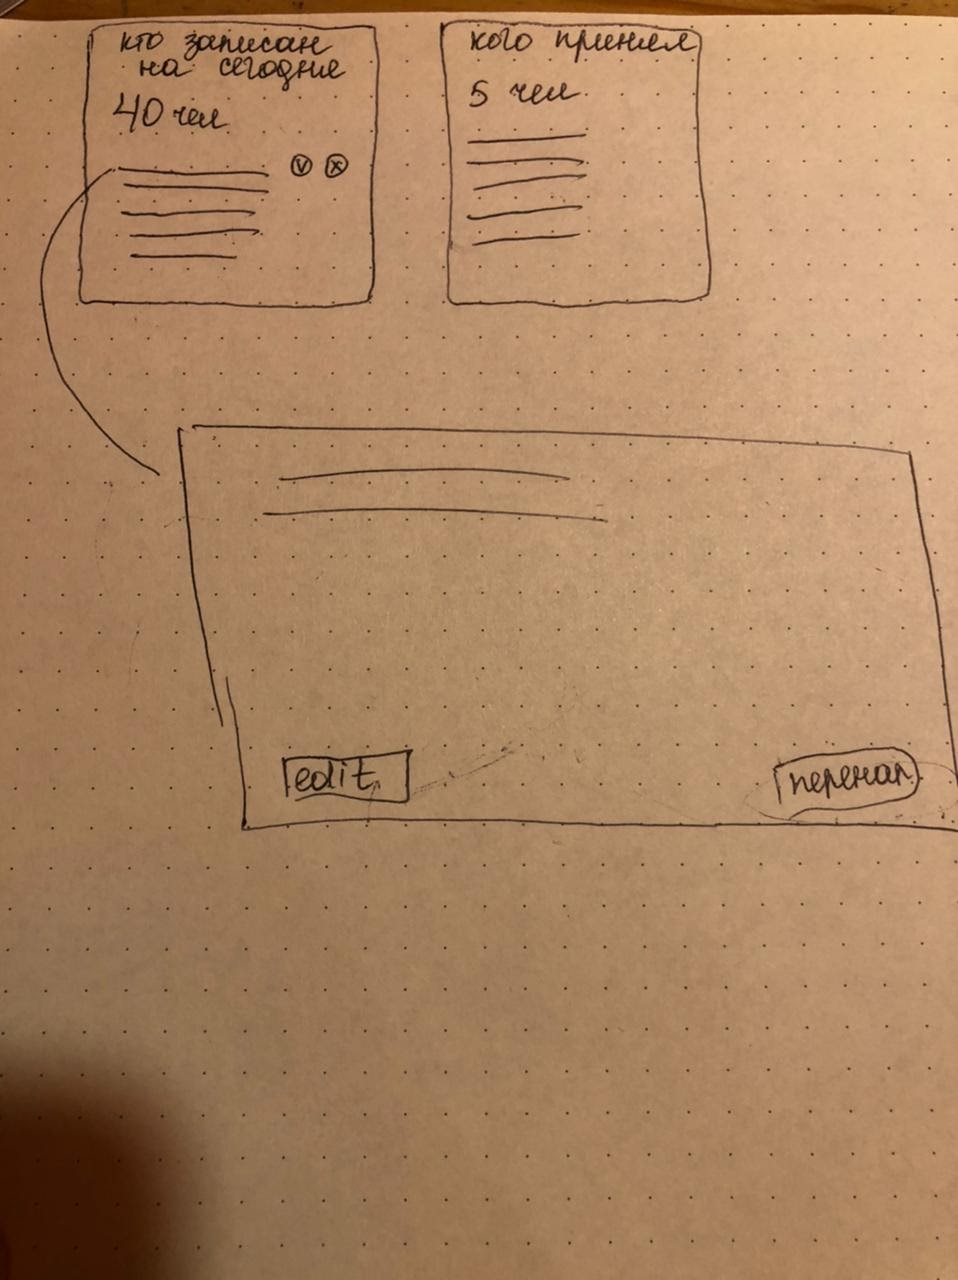 кто записан
на сегодня
40 чел
кого принял
5 чел.
edit
перенап